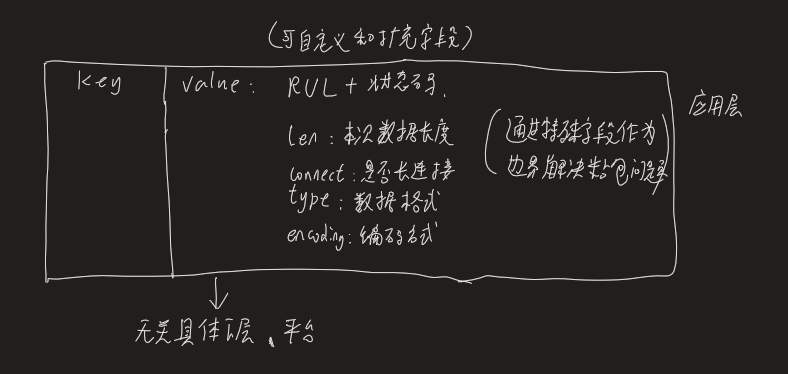 (可自定义和扩充字段)
key
value: RUL + 状态码.
len:本次数据长度
connect:是否长连接
type:数据格式
encoding:编码方式
(通过特殊字段作为
边界解决粘包问题)
应用层
无关具体下层、平台